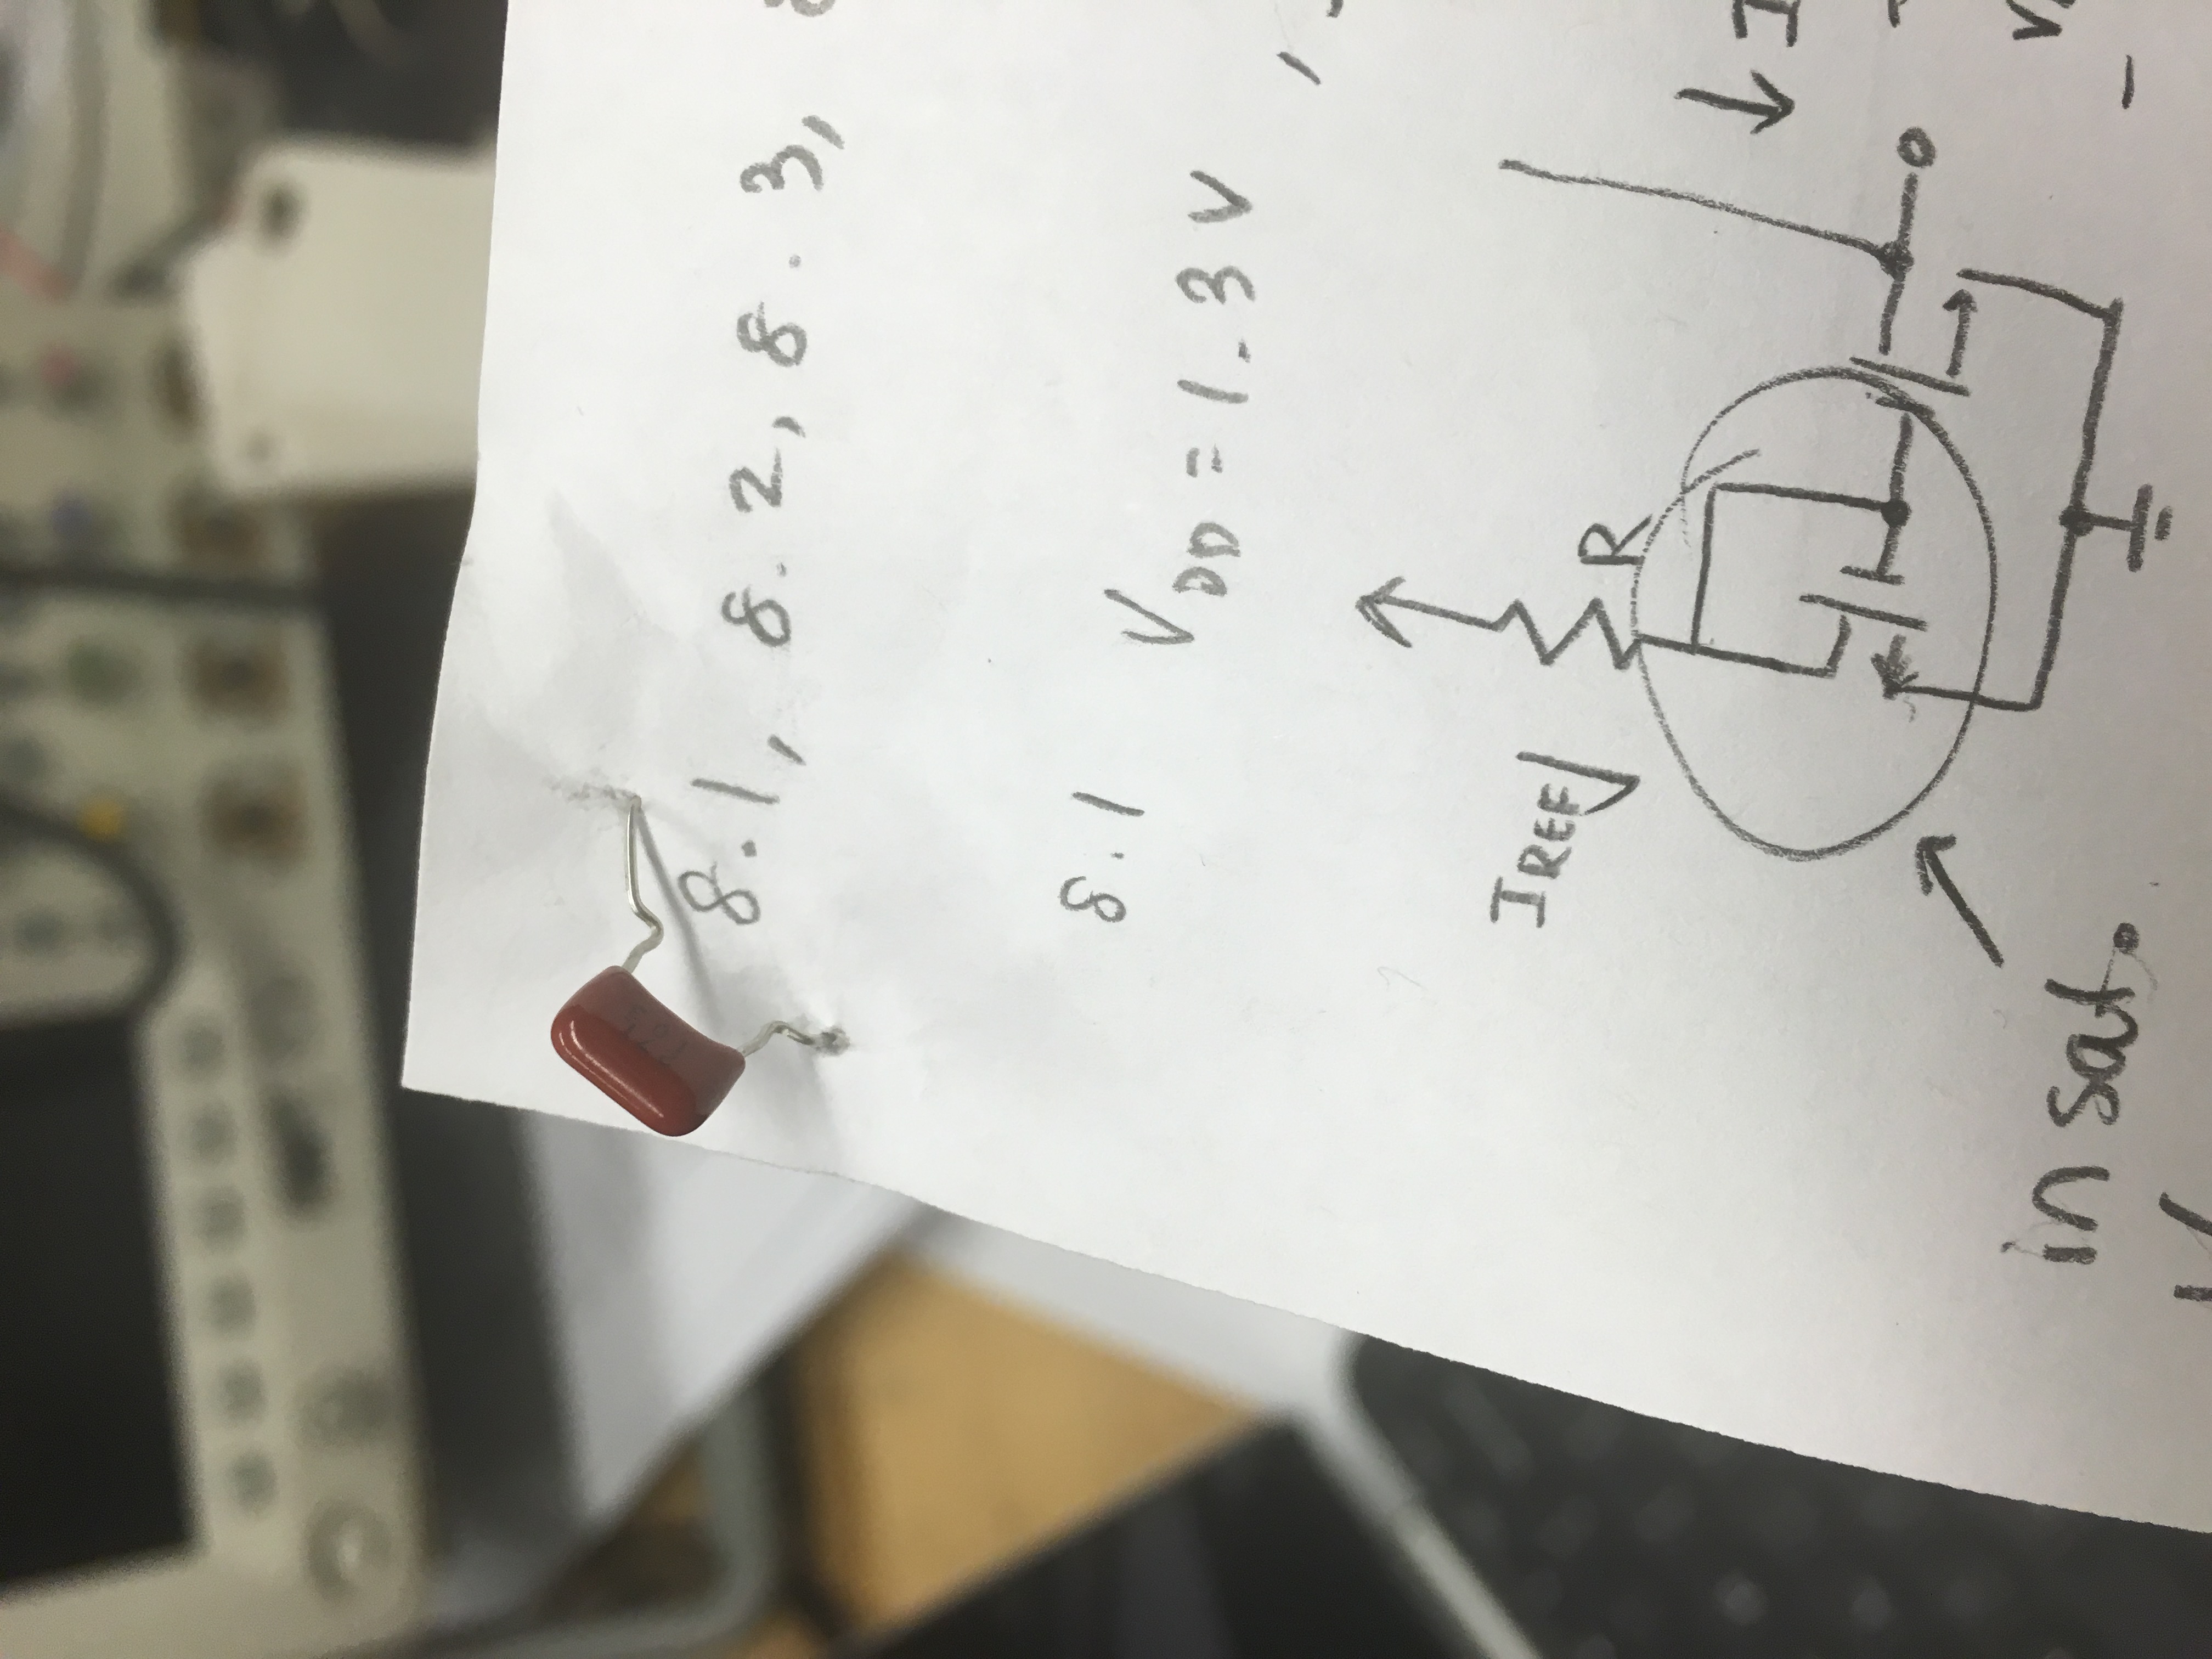 8.1, 8.2, 8.3,
8.1 V_DD = 1.3 V ,
I_REF
R
I
in sat.